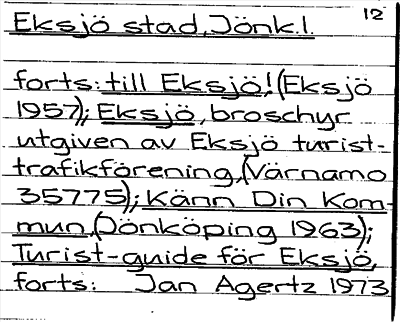 12
Eksjö stad, Jönk.l.
forts: till Eksjö! (Eksjö
1957); Eksjö, broschyr
utgiven av Eksjö turist-
trafikförening, (Värnamo
35775); Känn Din Kom-
mun, (Jönköping 1963);
Turist-guide för Eksjö,
forts: Jan Agertz 1973